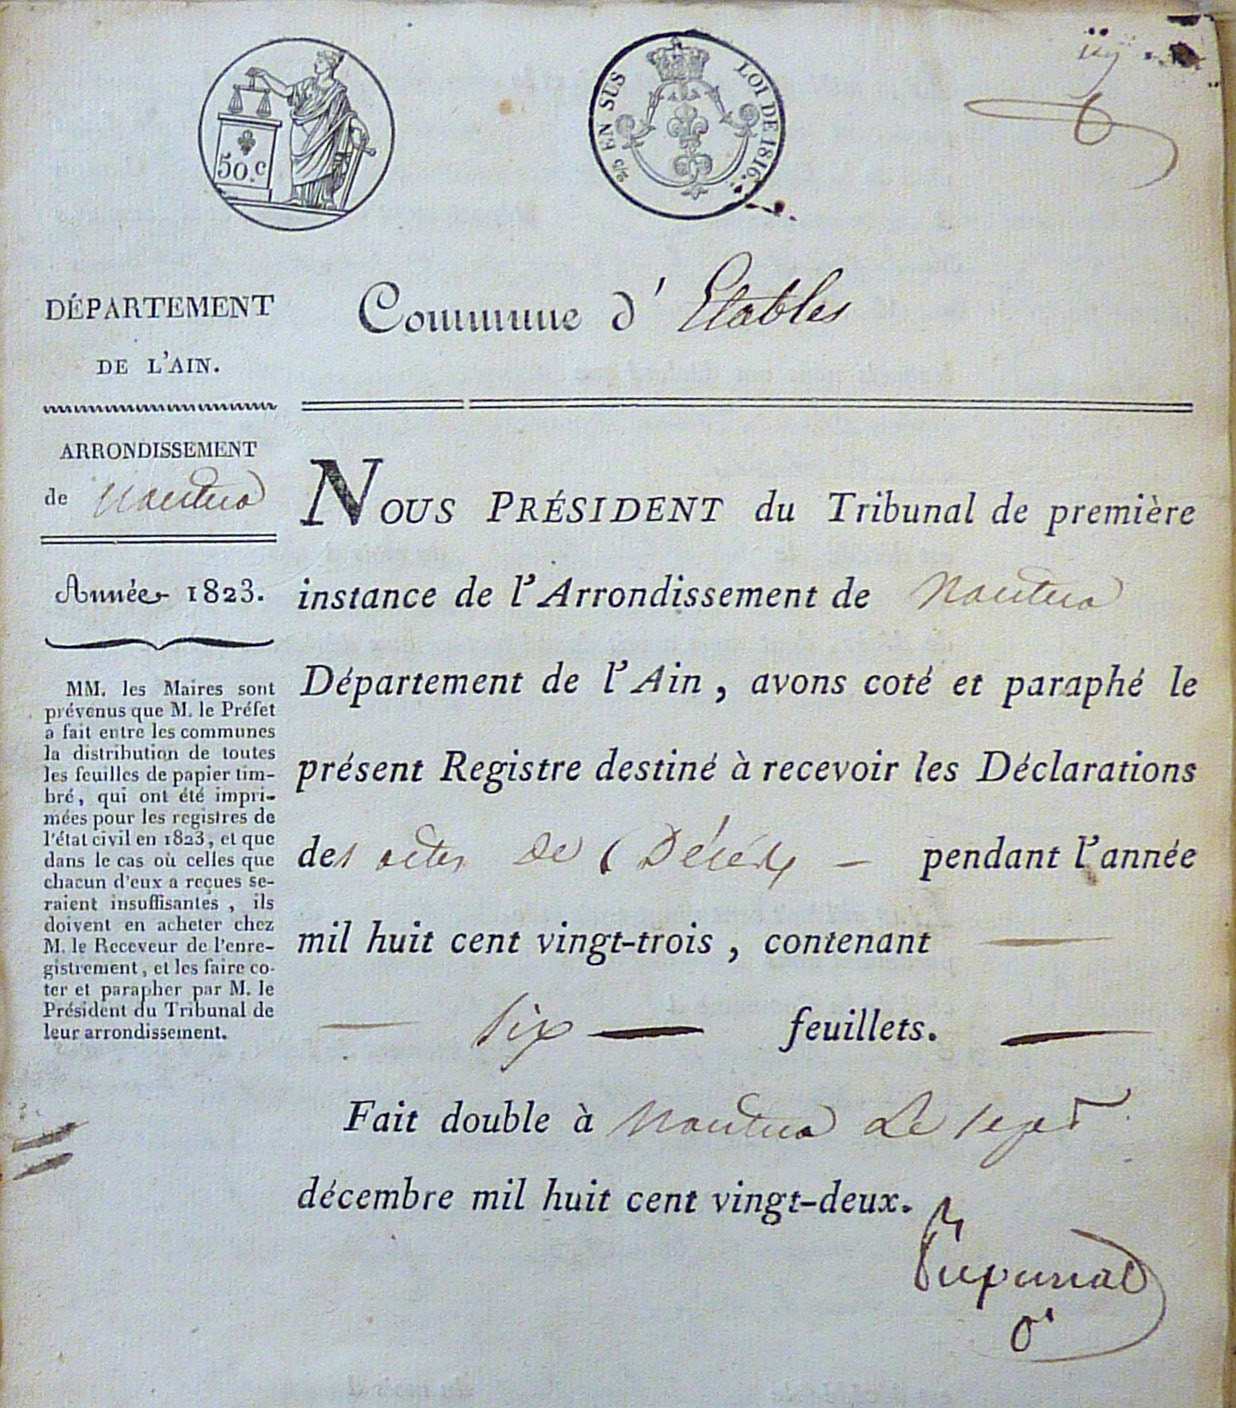 50.c
2/5 EN SUS
LOI DE 1816.
DÉPARTEMENT
DE L'AIN.
Commune d' Etables
ARRONDISSEMENT
de Nantua
Année 1823.
MM. les Maires sont
prévenus que M. le Préfet
a fait entre les communes
la distribution de toutes
les feuilles de papier tim-
bré, qui ont été impri-
mées pour les registres de
l'état civil en 1823, et que
dans le cas où celles que
chacun d'eux a reçues se-
raient insuffisantes, ils
doivent en acheter chez
M. le Receveur de l'enre-
gistrement, et les faire co-
ter et parapher par M. le
Président du Tribunal de
leur arrondissement.
NOUS PRÉSIDENT du Tribunal de première
instance de l'Arrondissement de Nantua
Département de l'Ain, avons coté et paraphé le
présent Registre destiné à recevoir les Déclarations
des actes de Décès — pendant l'année
mil huit cent vingt-trois, contenant —
— six — feuillets. —
Fait double à Nantua Le sept
décembre mil huit cent vingt-deux.